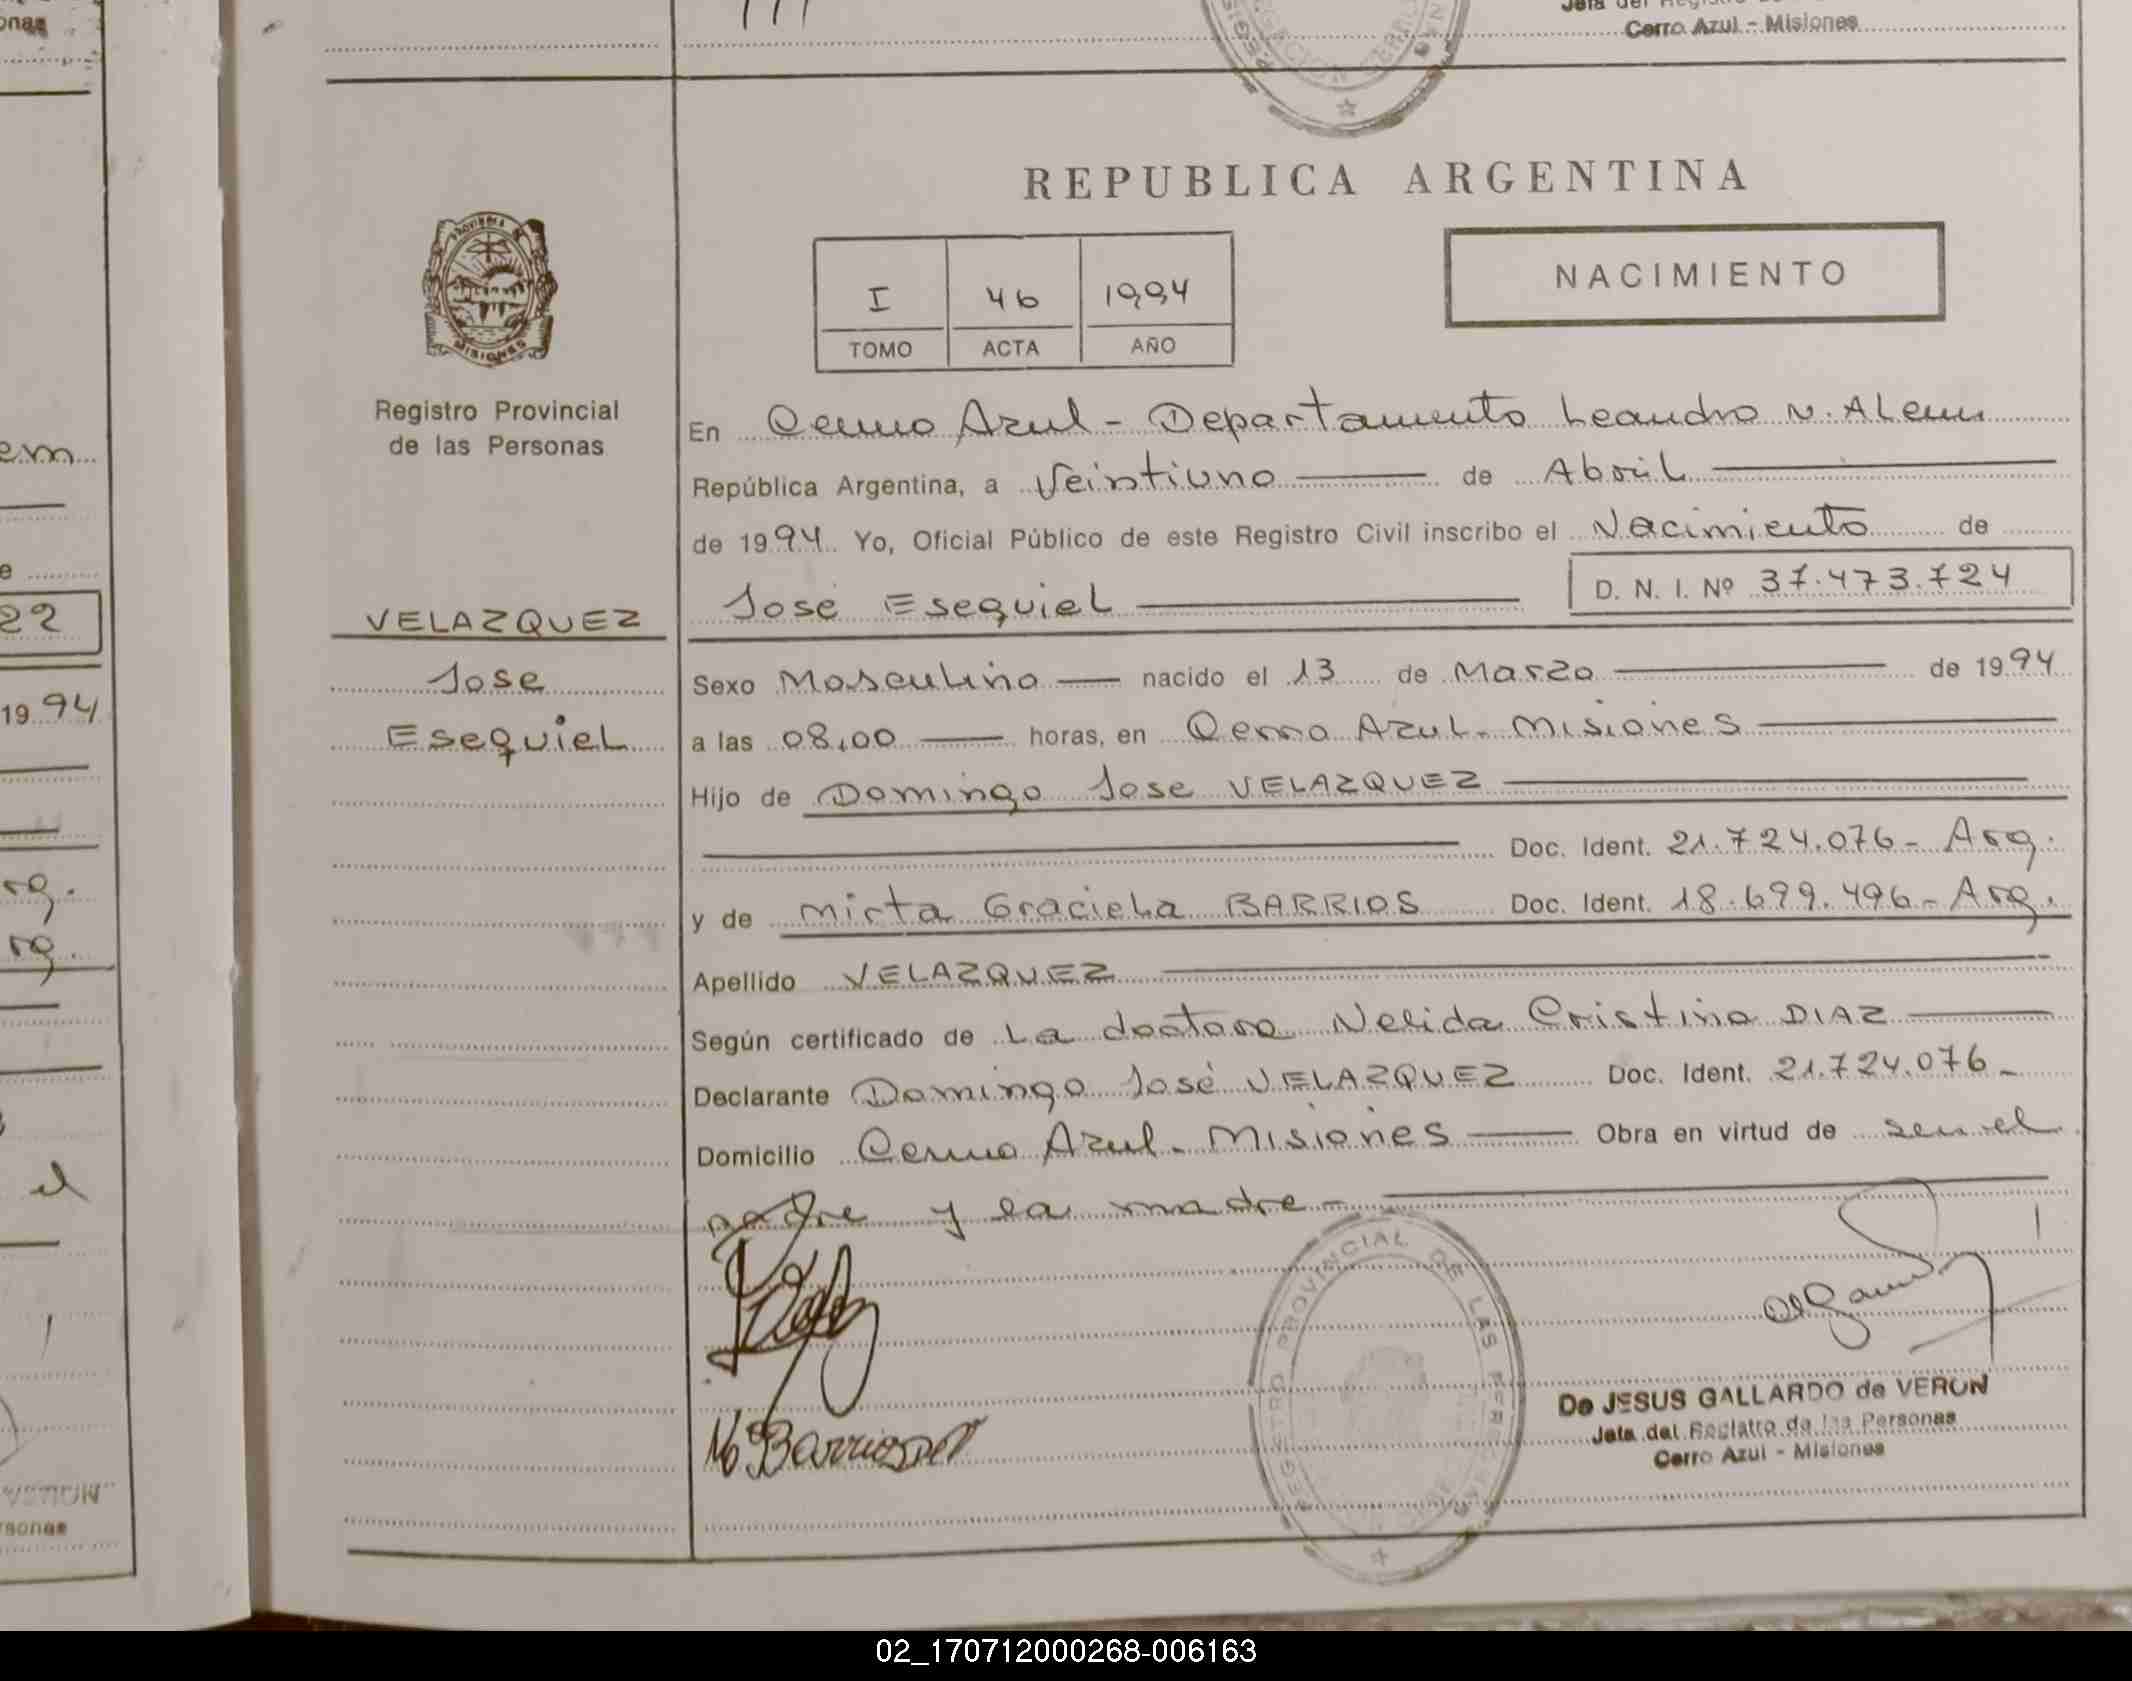 onas
Jefa del
Cerro Azul - Misiones
REPUBLICA ARGENTINA
PROVINCIA
MISIONES
I 46 1994
TOMO ACTA AÑO
NACIMIENTO
Registro Provincial
de las Personas
En Cerro Azul - Departamento Leandro N. ALem
República Argentina, a Veintiuno de Abril
de 1994 Yo, Oficial Público de este Registro Civil inscribo el Nacimiento de
José EsequieL D. N. I. Nº 37.473.724
VELAZQUEZ
Jose
EsequieL
Sexo Masculino nacido el 13 de Marzo de 1994
a las 08,00 horas, en Cerro Azul - Misiones
Hijo de Domingo Jose VELAZQUEZ
Doc. Ident. 21.724.076 - Arg.
y de Mirta Graciela BARRIOS Doc. Ident. 18.699.496 - Arg.
Apellido VELAZQUEZ
Según certificado de La doctora Nelida Cristina DIAZ
Declarante Domingo José VELAZQUEZ Doc. Ident. 21.724.076 -
Domicilio Cerro Azul - Misiones Obra en virtud de ser el
padre y la madre -
REGISTRO PROVINCIAL DE LAS PERSONAS
M Barrios
De JESUS GALLARDO de VERON
Jefa del Registro de las Personas
Cerro Azul - Misiones
em
e
22
1994
rg.
rg.
el
rsonas
02_170712000268-006163